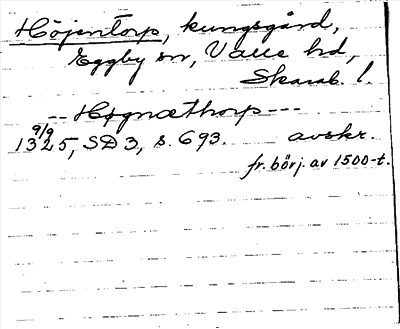 Höjentorp, kungsgård,
Eggby sn, Valle hd,
Skarab. l.
-- Høgnæthorp ---
9/9
1325, SD 3, s. 693. avskr.
fr. börj. av 1500-t.